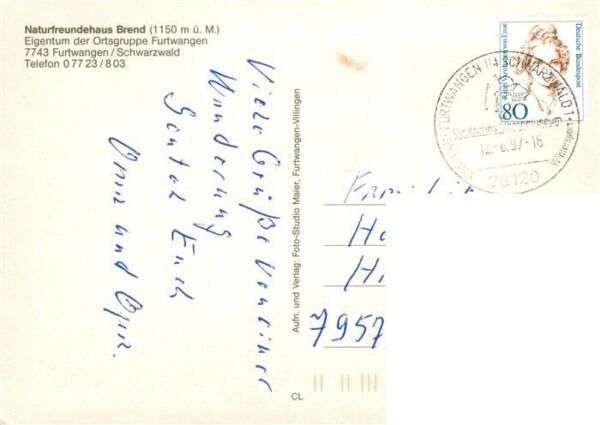 Naturfreundehaus Brend (1150 m ü. M.)
Eigentum der Ortsgruppe Furtwangen
7743 Furtwangen/Schwarzwald
Telefon 0 77 23/8 03
Viele Grüße von einer
Wanderung
Sendet Euch
Oma und Opa.
Aufn. und Verlag: Foto-Studio Maier, Furtwangen-Villingen
CL
Deutsche Bundespost
80
FURTWANGEN IM SCHWARZWALD 1
Deutsches Uhrenmuseum
12.-6.97-16
78120
Wintersport
Famili
Ha
H
7957